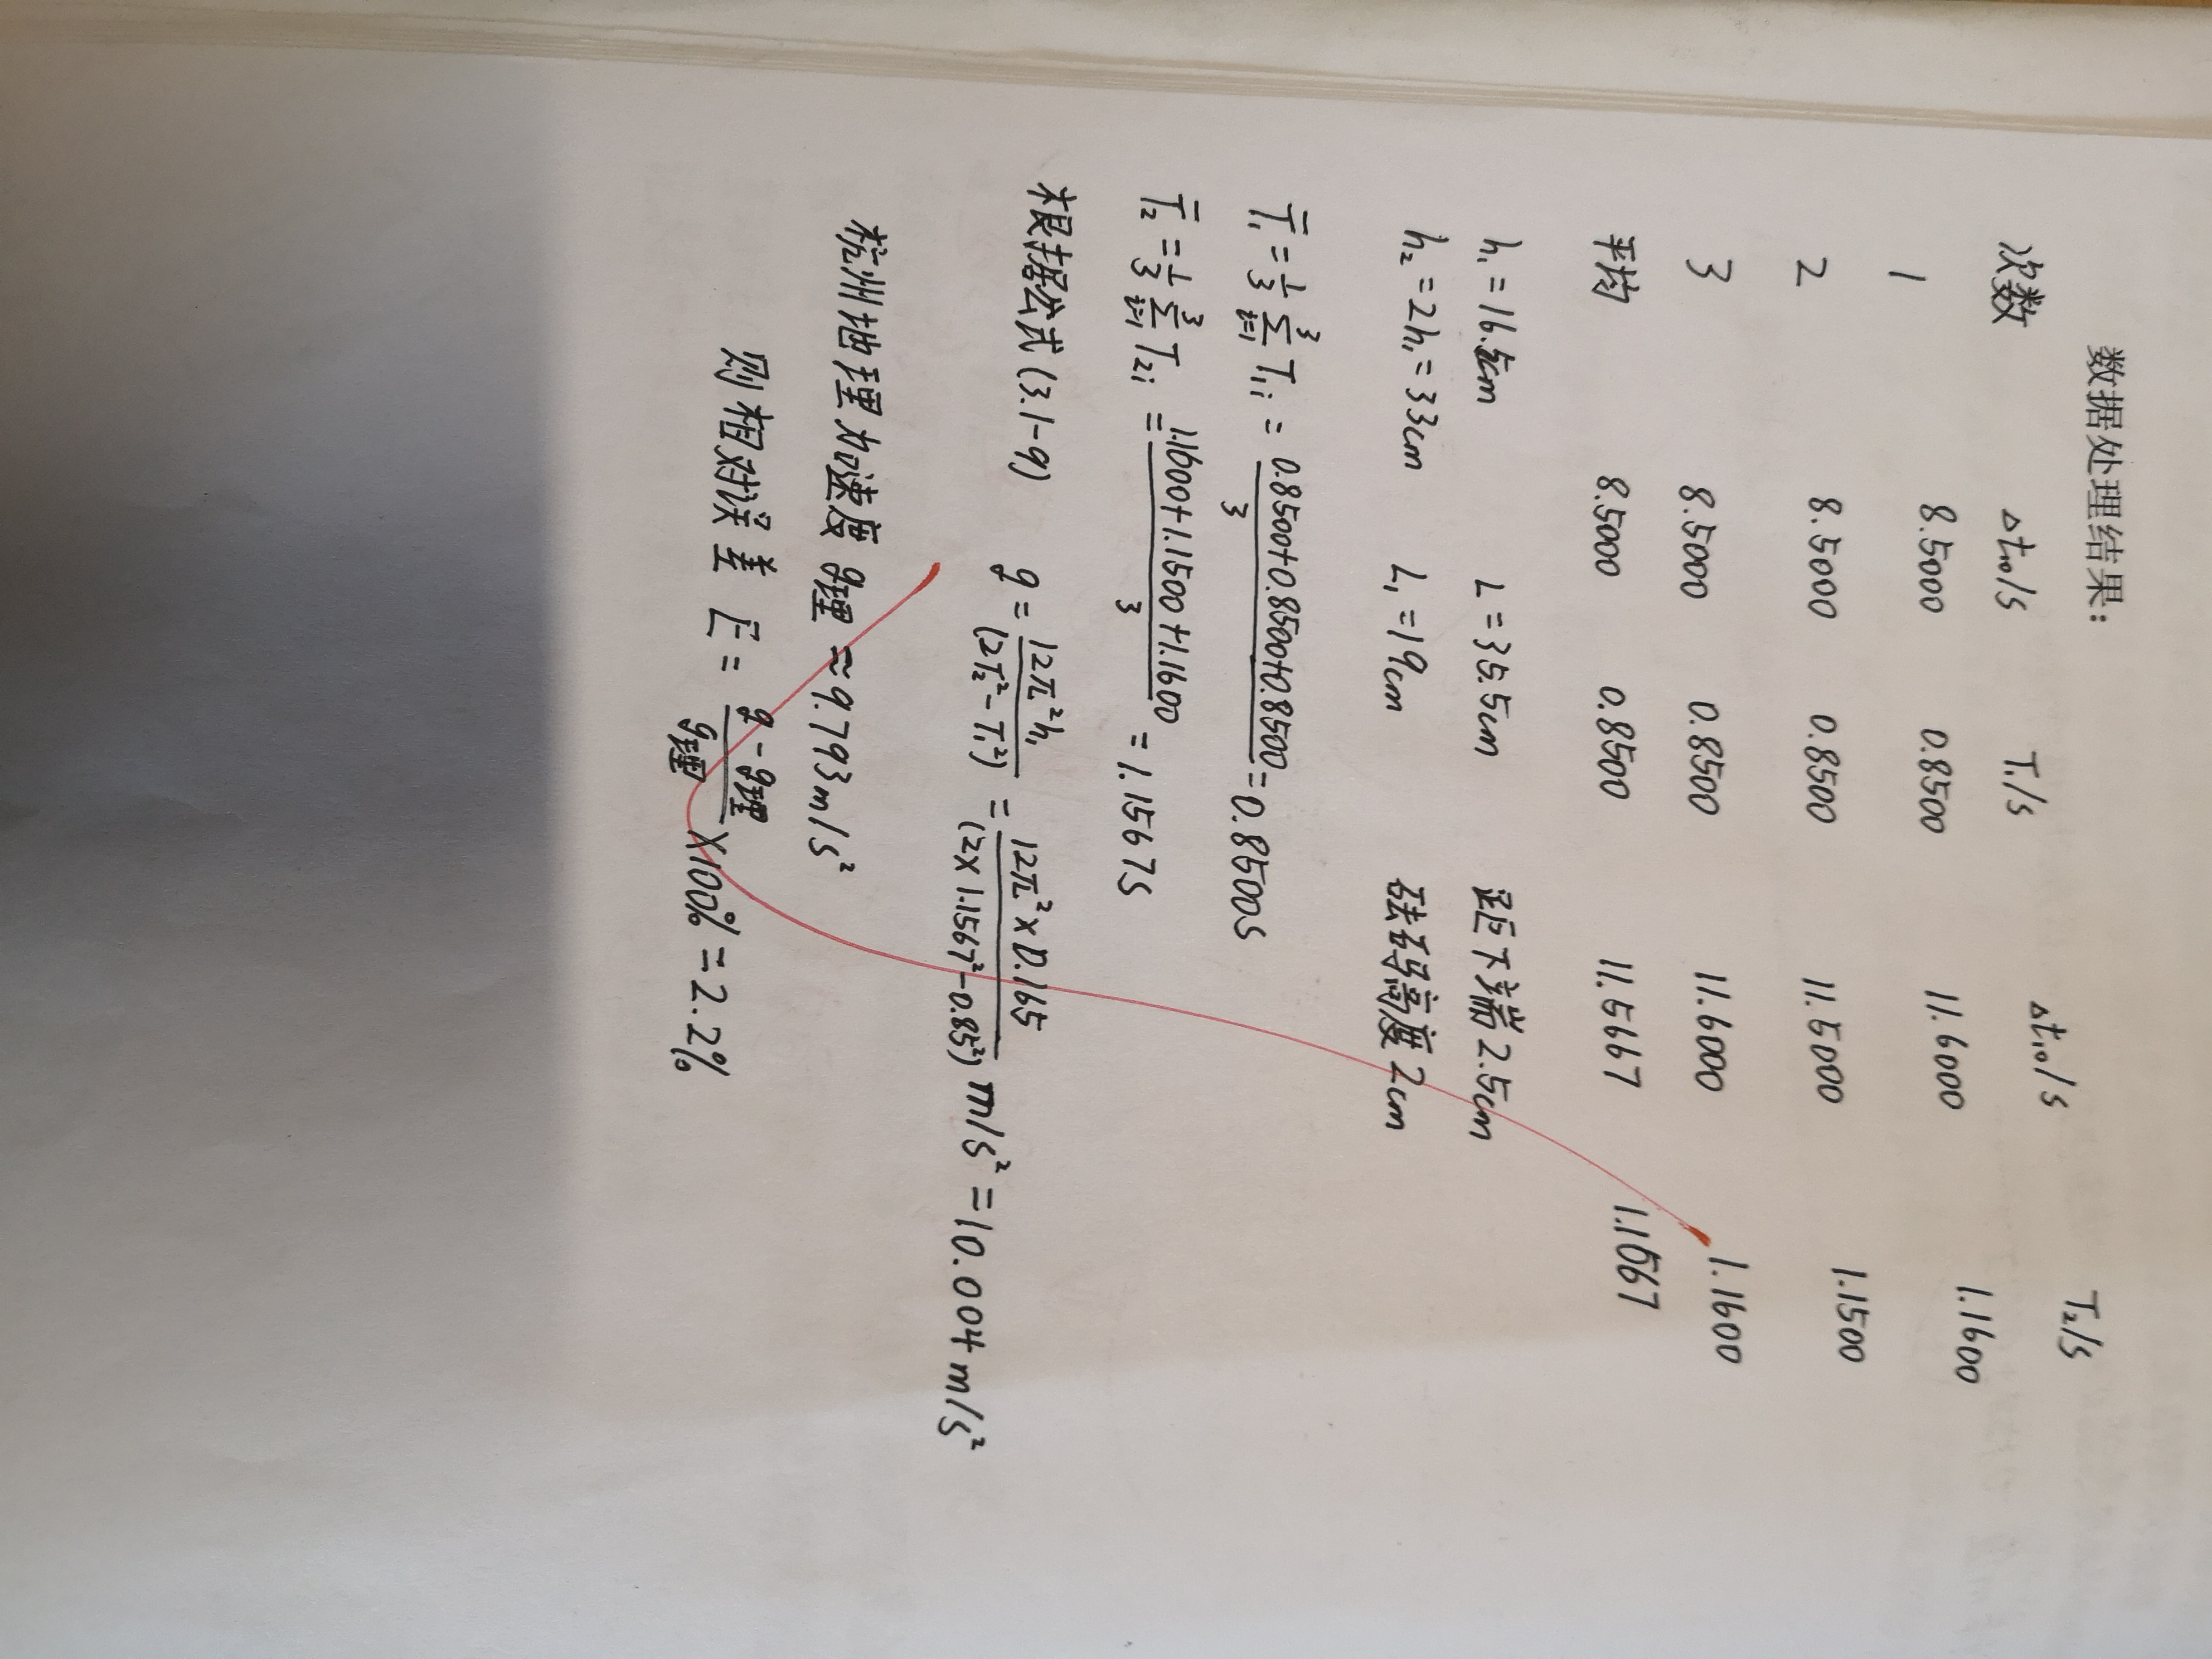 数据处理结果：
次数 Δt₁₀/s T₁/s Δt₁₀/s T₂/s
1 8.5000 0.8500 11.6000 1.1600
2 8.5000 0.8500 11.5000 1.1500
3 8.5000 0.8500 11.6000 1.1600
平均 8.5000 0.8500 11.5667 1.1567
h₁=16.5cm L=35.5cm 距下端2.5cm
h₂=2h₁=33cm L₁=19cm 砝码高度2cm
T̄₁=1/3 ∑(i=1→3) T₁ᵢ = (0.8500+0.8500+0.8500)/3 = 0.8500s
T̄₂=1/3 ∑(i=1→3) T₂ᵢ = (1.1600+1.1500+1.1600)/3 = 1.1567s
根据公式(3.1-9) g = 12π²h₁/(2T₂²-T₁²) = 12π²×0.165/(2×1.1567²-0.85²) m/s² = 10.004m/s²
杭州地理力速度 g理≈9.793m/s²
则相对误差 E = (g-g理)/g理 ×100%=2.2%